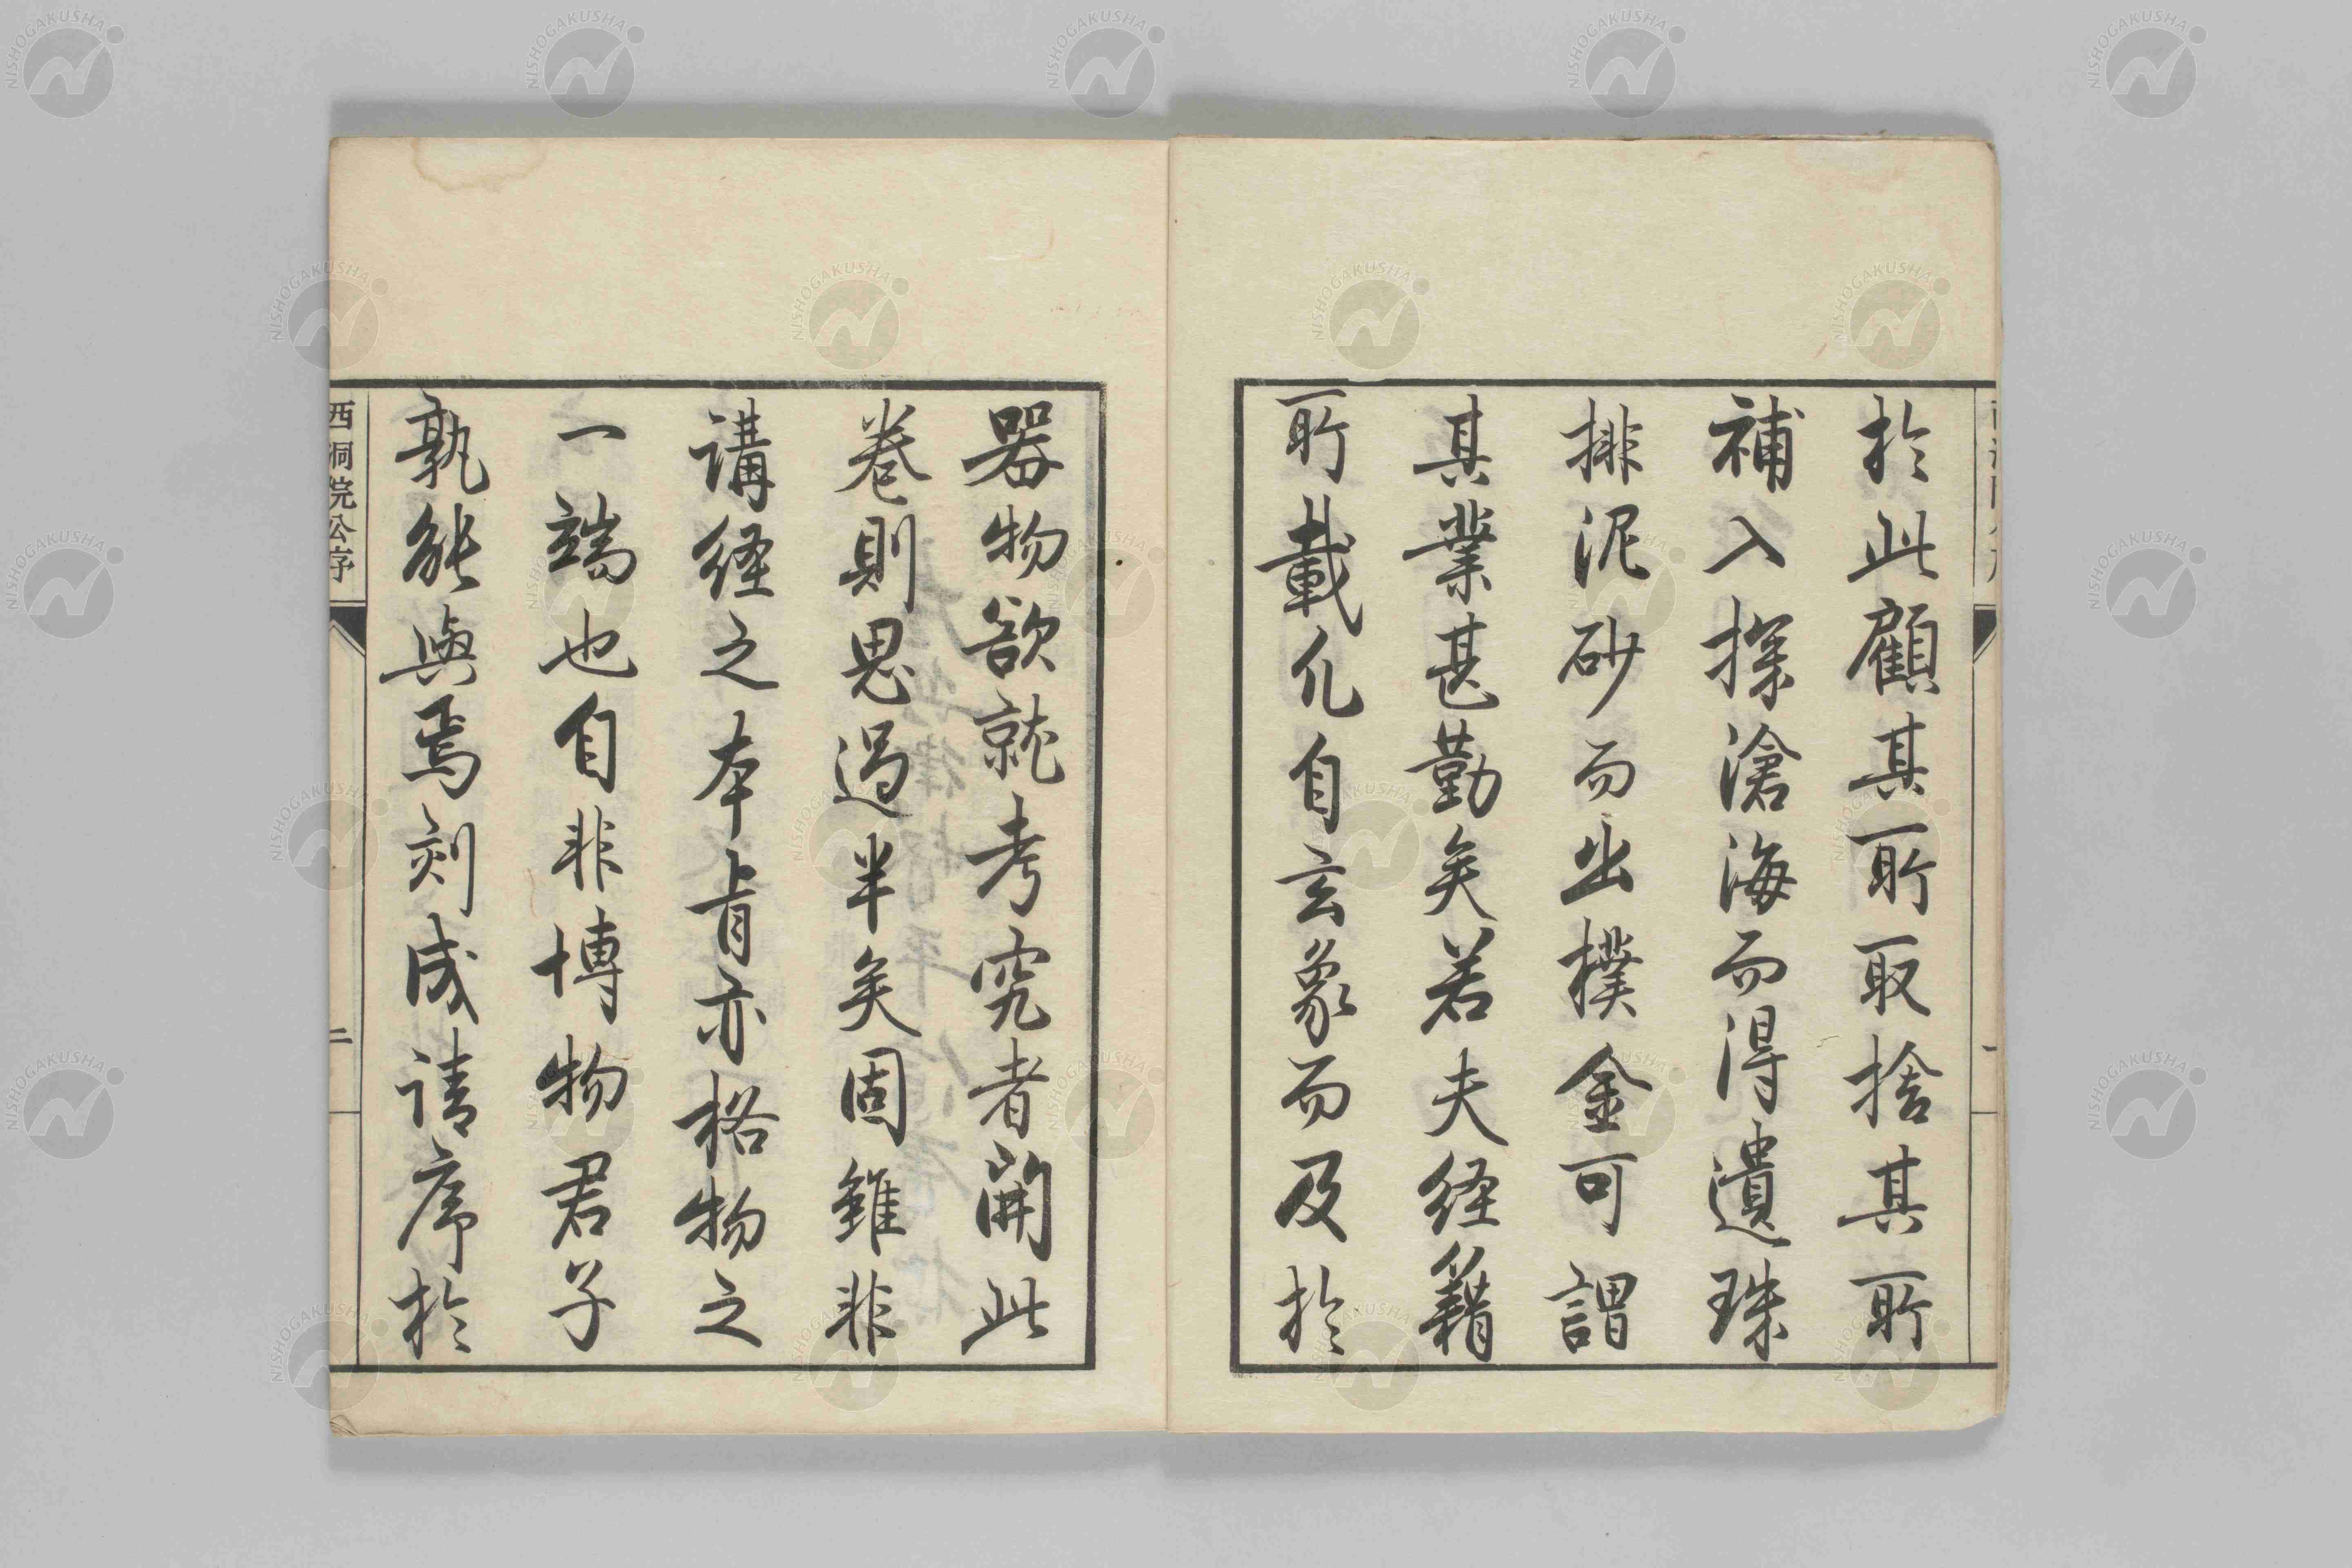 於此顧其所取捨其所
補入探滄海而得遺珠
排泥砂而出樸金可謂
其業甚勤矣若夫経籍
所載凡自玄象而及於
器物欲就考究者開此
巻則思過半矣固雖非
講経之本旨亦格物之
一端也自非博物君子
孰能與焉刻成請序於
西洞院公序
二
NISHOGAKUSHA